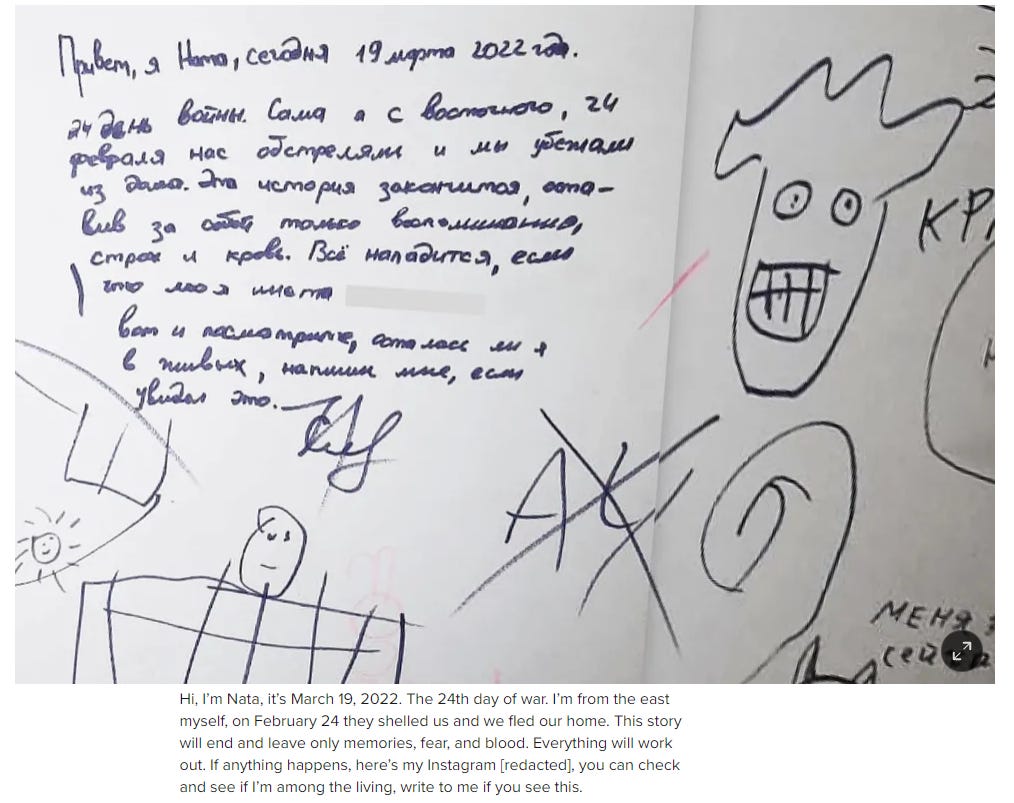 Привет, я Ната, сегодня 19 марта 2022 год.
24 день войны. Сама я с восточного, 24
февраля нас обстреляли и мы убежали
из дома. Эта история закончится, оста-
вив за собой только воспоминания,
страх и кровь. Всё наладится, если
что моя инста
вот и посмотрите, осталась ли я
в живых, напиши мне, если
увидел это.
МЕНЯ
Hi, I’m Nata, it’s March 19, 2022. The 24th day of war. I’m from the east
myself, on February 24 they shelled us and we fled our home. This story
will end and leave only memories, fear, and blood. Everything will work
out. If anything happens, here’s my Instagram [redacted], you can check
and see if I’m among the living, write to me if you see this.